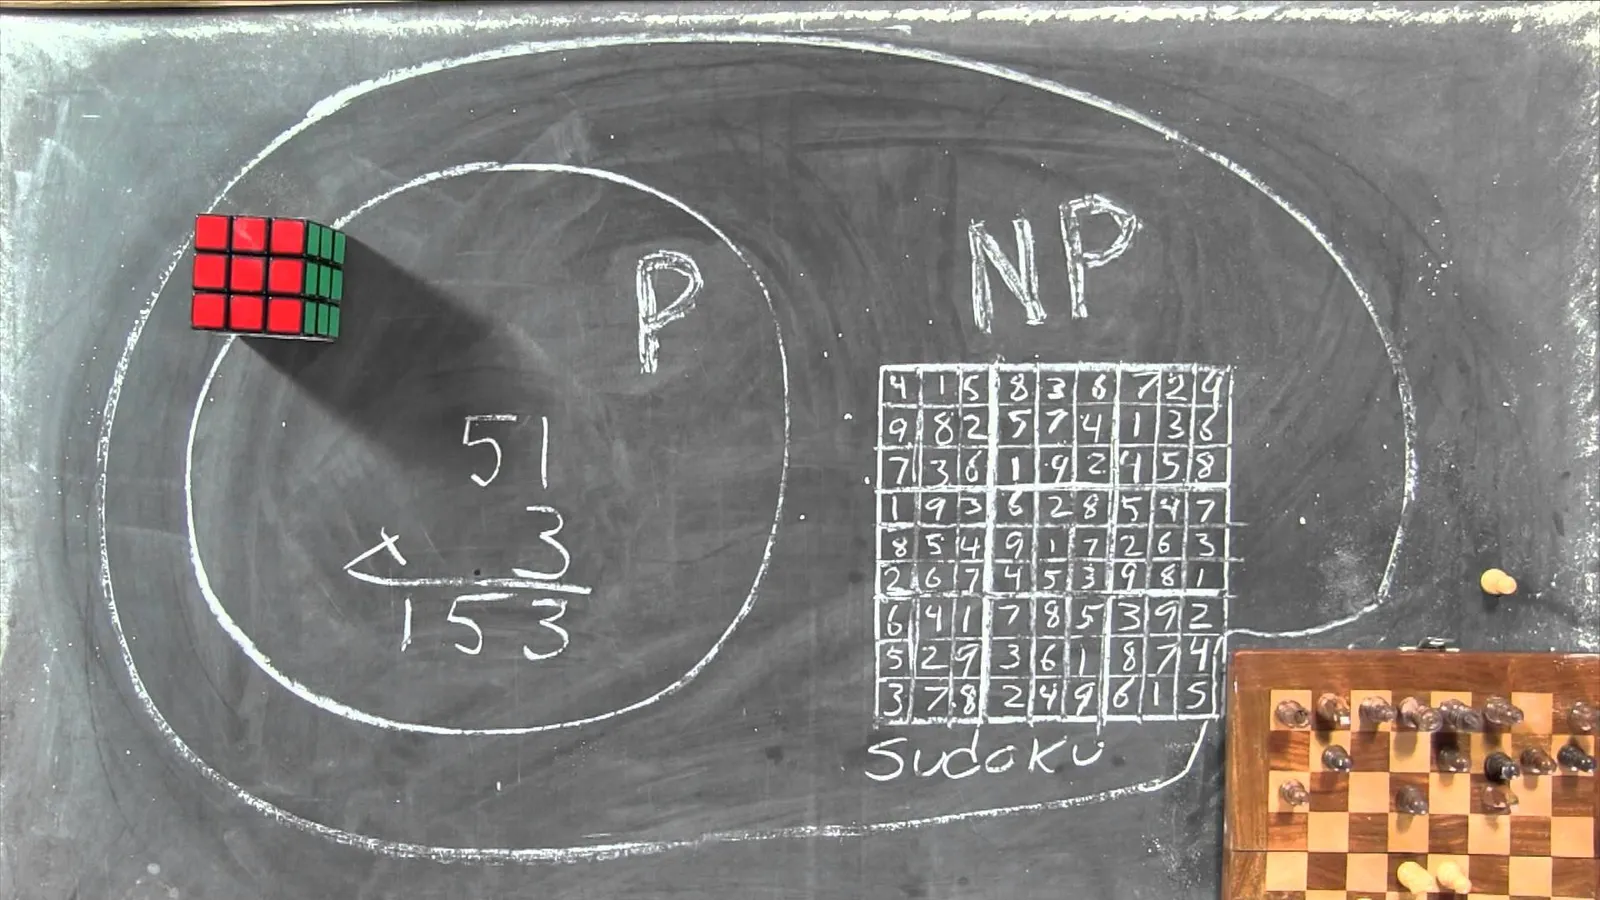 P
NP
51
× 3
153
4 1 5 8 3 6 7 2 9
9 8 2 5 7 4 1 3 6
7 3 6 1 9 2 4 5 8
1 9 3 6 2 8 5 4 7
8 5 4 9 1 7 2 6 3
2 6 7 4 5 3 9 8 1
6 4 1 7 8 5 3 9 2
5 2 9 3 6 1 8 7 4
3 7 8 2 4 9 6 1 5
Sudoku